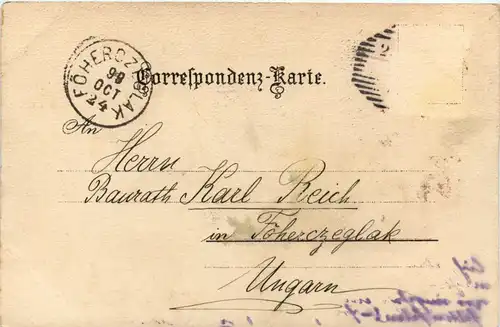 FÖHERCZEGLAK
98
OCT
24
Correspondenz-Karte.
An
Herrn
Baurath Karl Reich
in Föherczeglak
Ungarn